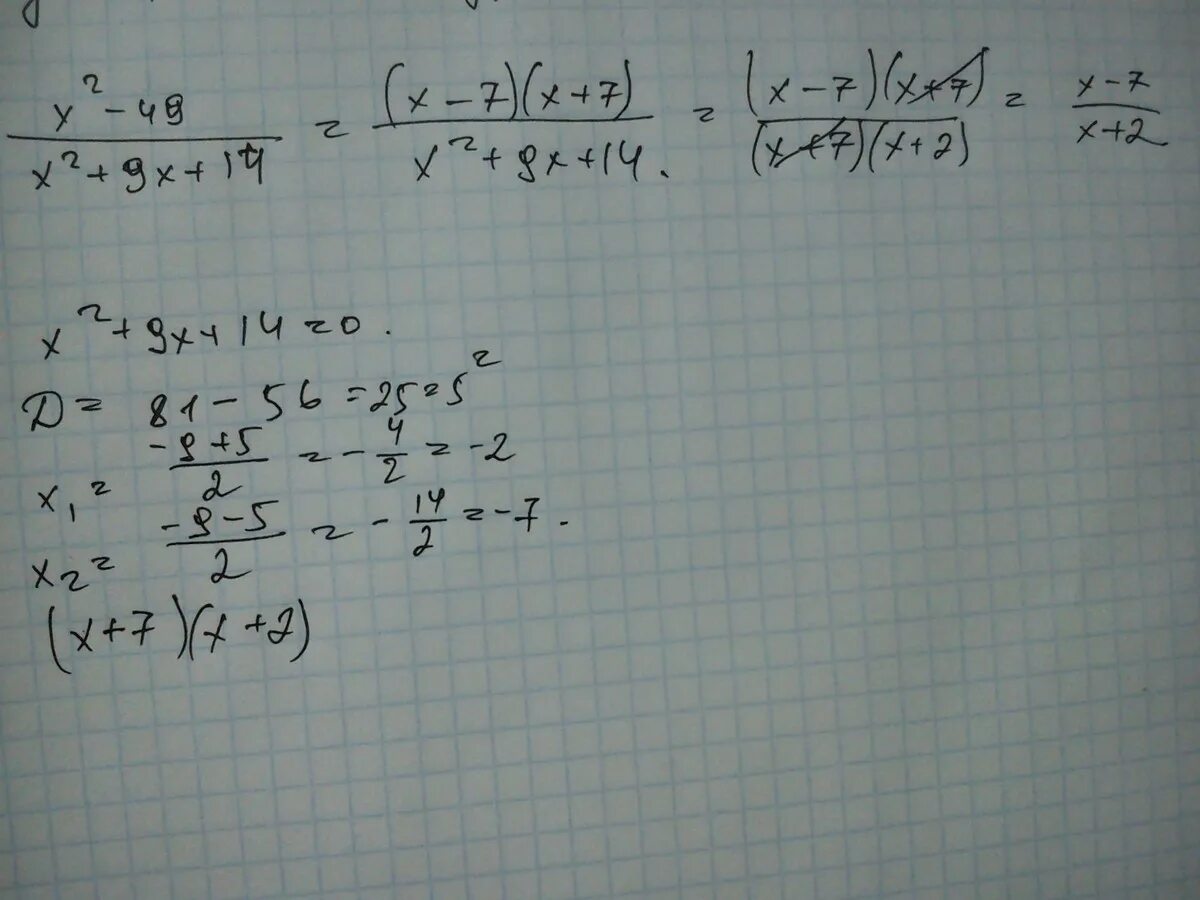 x² - 49 / x² + 9x + 14 = (x - 7)(x + 7) / x² + 9x + 14. = (x - 7)(x + 7) / (x + 7)(x + 2) = x - 7 / x + 2
x² + 9x + 14 = 0.
D = 81 - 56 = 25 = 5²
x₁ = -9 + 5 / 2 = - 4 / 2 = -2
x₂ = -9 - 5 / 2 = - 14 / 2 = -7.
(x + 7)(x + 2)